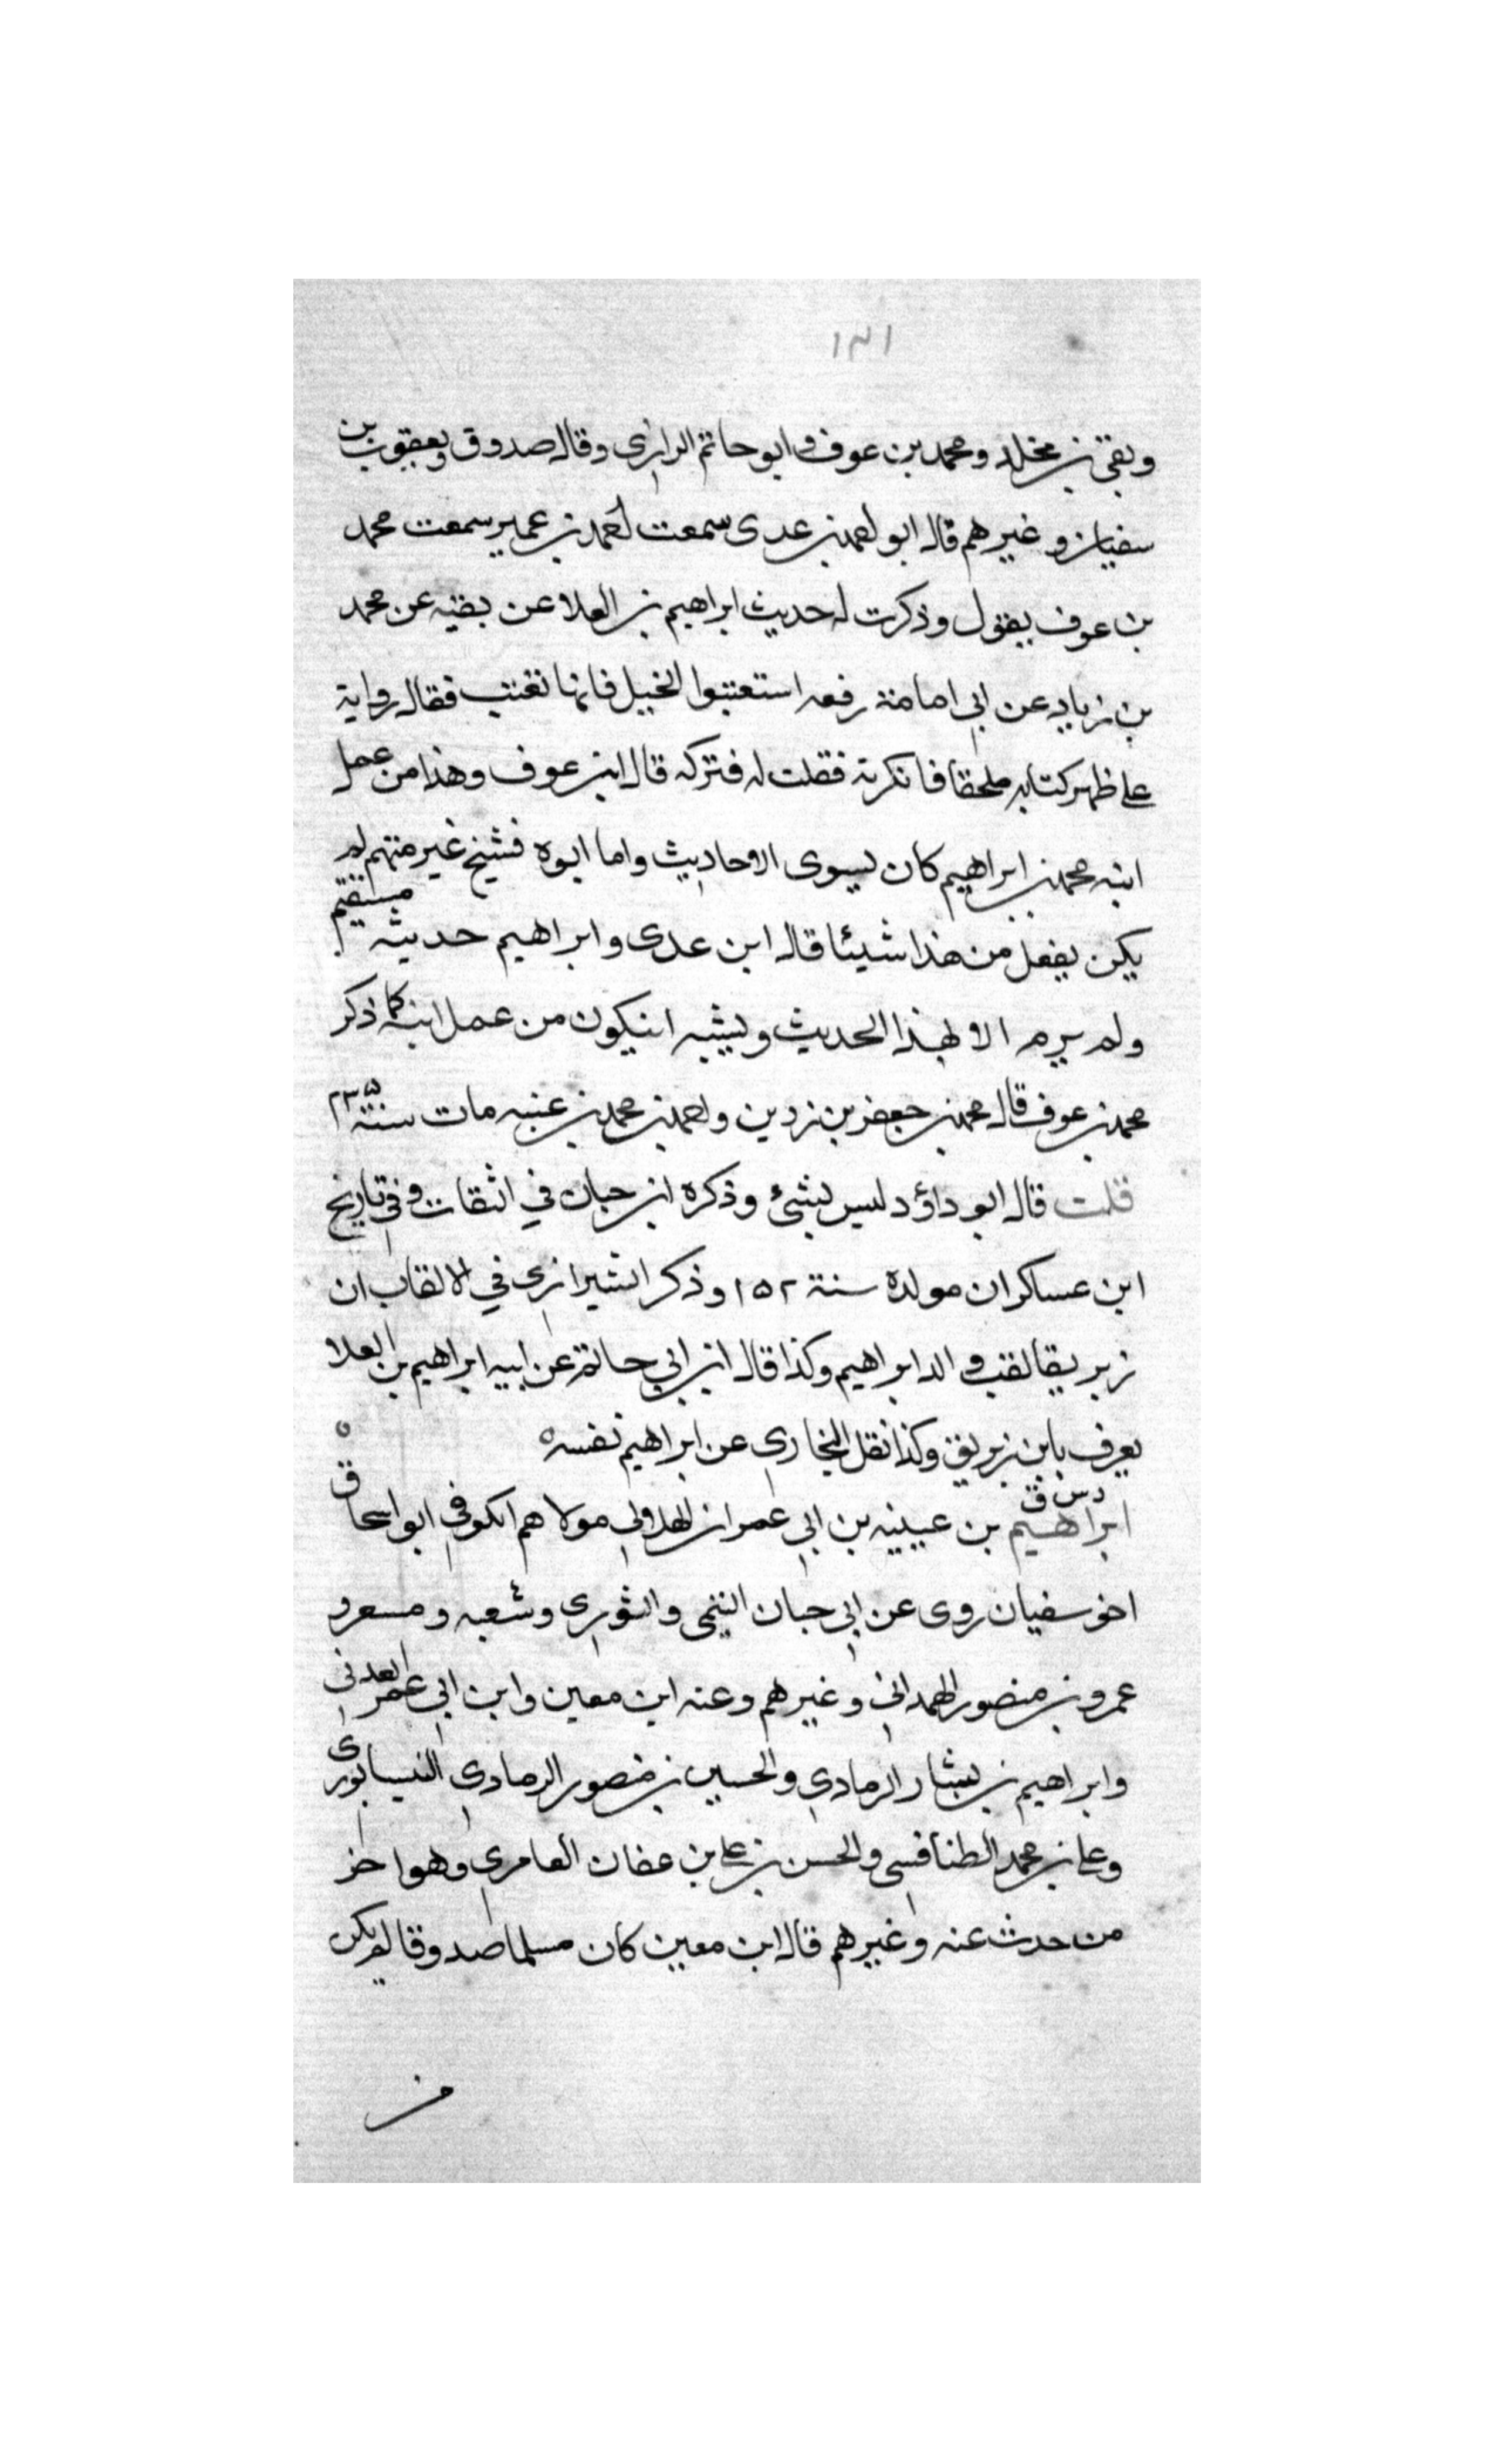 ١٣١
وبقي بن مخلد ومحمد بن عوف وابو حاتم الرازي وقال صدوق ويعقوب بن
سفيان وغيرهم قال ابو احمد بن عدى سمعت احمد بن عمير سمعت محمد
بن عوف يقول وذكرت له حديث ابراهيم بن العلا عن بقيه عن محمد
بن زياد عن ابي امامة رفعه استعتبوا الخيل فانها تعتب فقال رواية
على ظهر كتابه ملحقا فانكرته فقلت له فتركه قال ابن عوف وهذا من عمل
ابنه محمد بن ابراهيم كان يسوى الاحاديث واما ابوه فشيخ غير متهم لم
يكن يفعل من هذا شيئا قال ابن عدى وابراهيم حديثه مستقيم
ولم يرم الا بهذا الحديث ويشبه ان يكون من عمل ابنه كما ذكر
محمد بن عوف قال محمد بن جعفر بن رزين واحمد بن محمد بن عنبه مات سنة ٢٣٥
قلت قال ابو داؤد ليس بشئ وذكره ابن حبان في الثقات وفي تاريخ
ابن عساكر ان مولده سنة ١٥٢ وذكر الشيرازي في الالقاب ان
زبريقا لقب والد ابراهيم وكذا قال ابن ابي حاتم عن ابيه ابراهيم بن العلا
يعرف بابن زبريق وكذا نقل البخاري عن ابراهيم نفسه ٥
دس ق
ابراهيم بن عيينه بن ابي عمران الهلالي مولاهم الكوفي ابو اسحاق
اخو سفيان روى عن ابي حبان التيمى والثوري وشعبه ومسعر و
عمرو بن منصور الهمداني وغيرهم وعنه ابن معين وابن ابي عمر العدني
وابراهيم بن بشار الرمادي والحسين بن منصور الرمادي النيسابورى
وعلى بن محمد الطنافسي والحسن بن على بن عفان العامري وهو اخر
من حدث عنه وغيرهم قال ابن معين كان مسلما صدوقا لم يكن
من